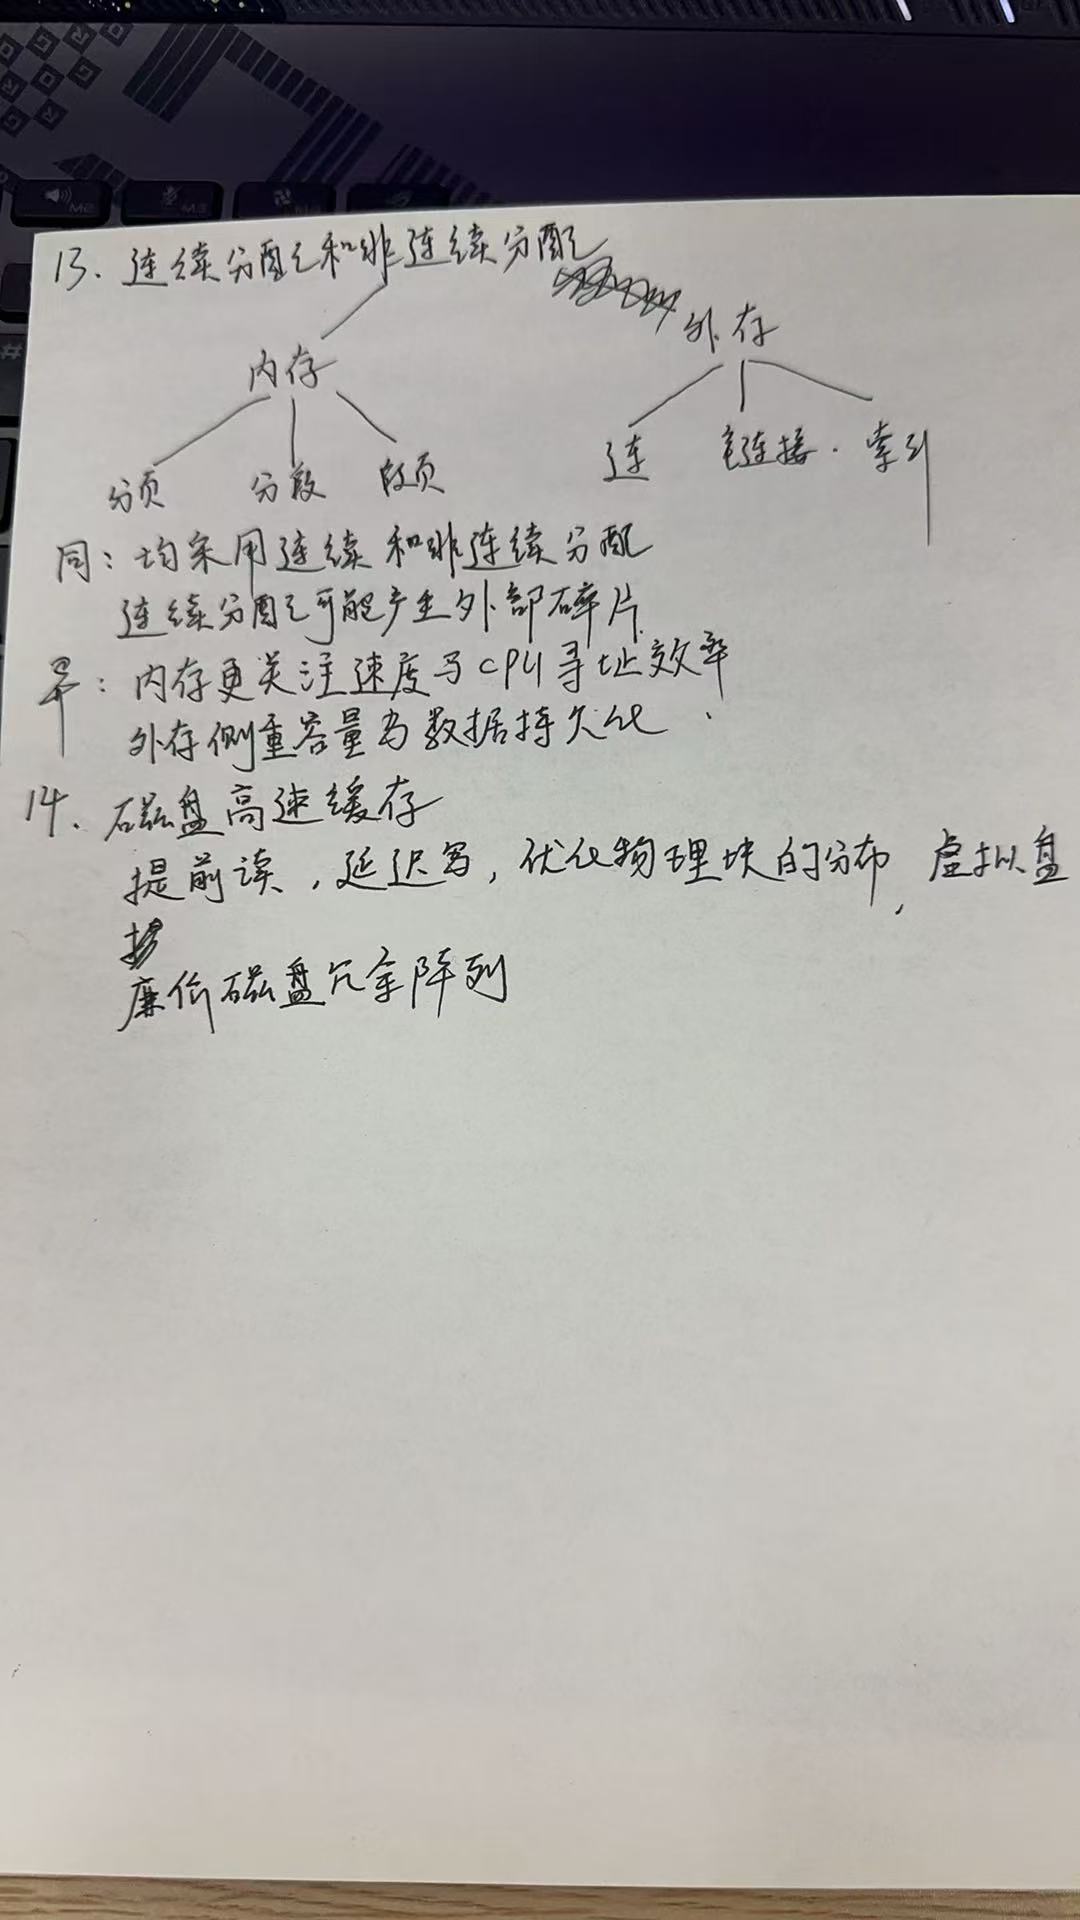 M2
M3
#
13. 连续分配和非连续分配
内存
外存
分页 分段 段页
连 链接. 索引
同: 均采用连续和非连续分配
连续分配可能产生外部碎片
异: 内存更关注速度与CPU寻址效率
外存侧重容量与数据持久化.
14. 磁盘高速缓存
提前读, 延迟写, 优化物理块的分布, 虚拟盘
廉价磁盘冗余阵列